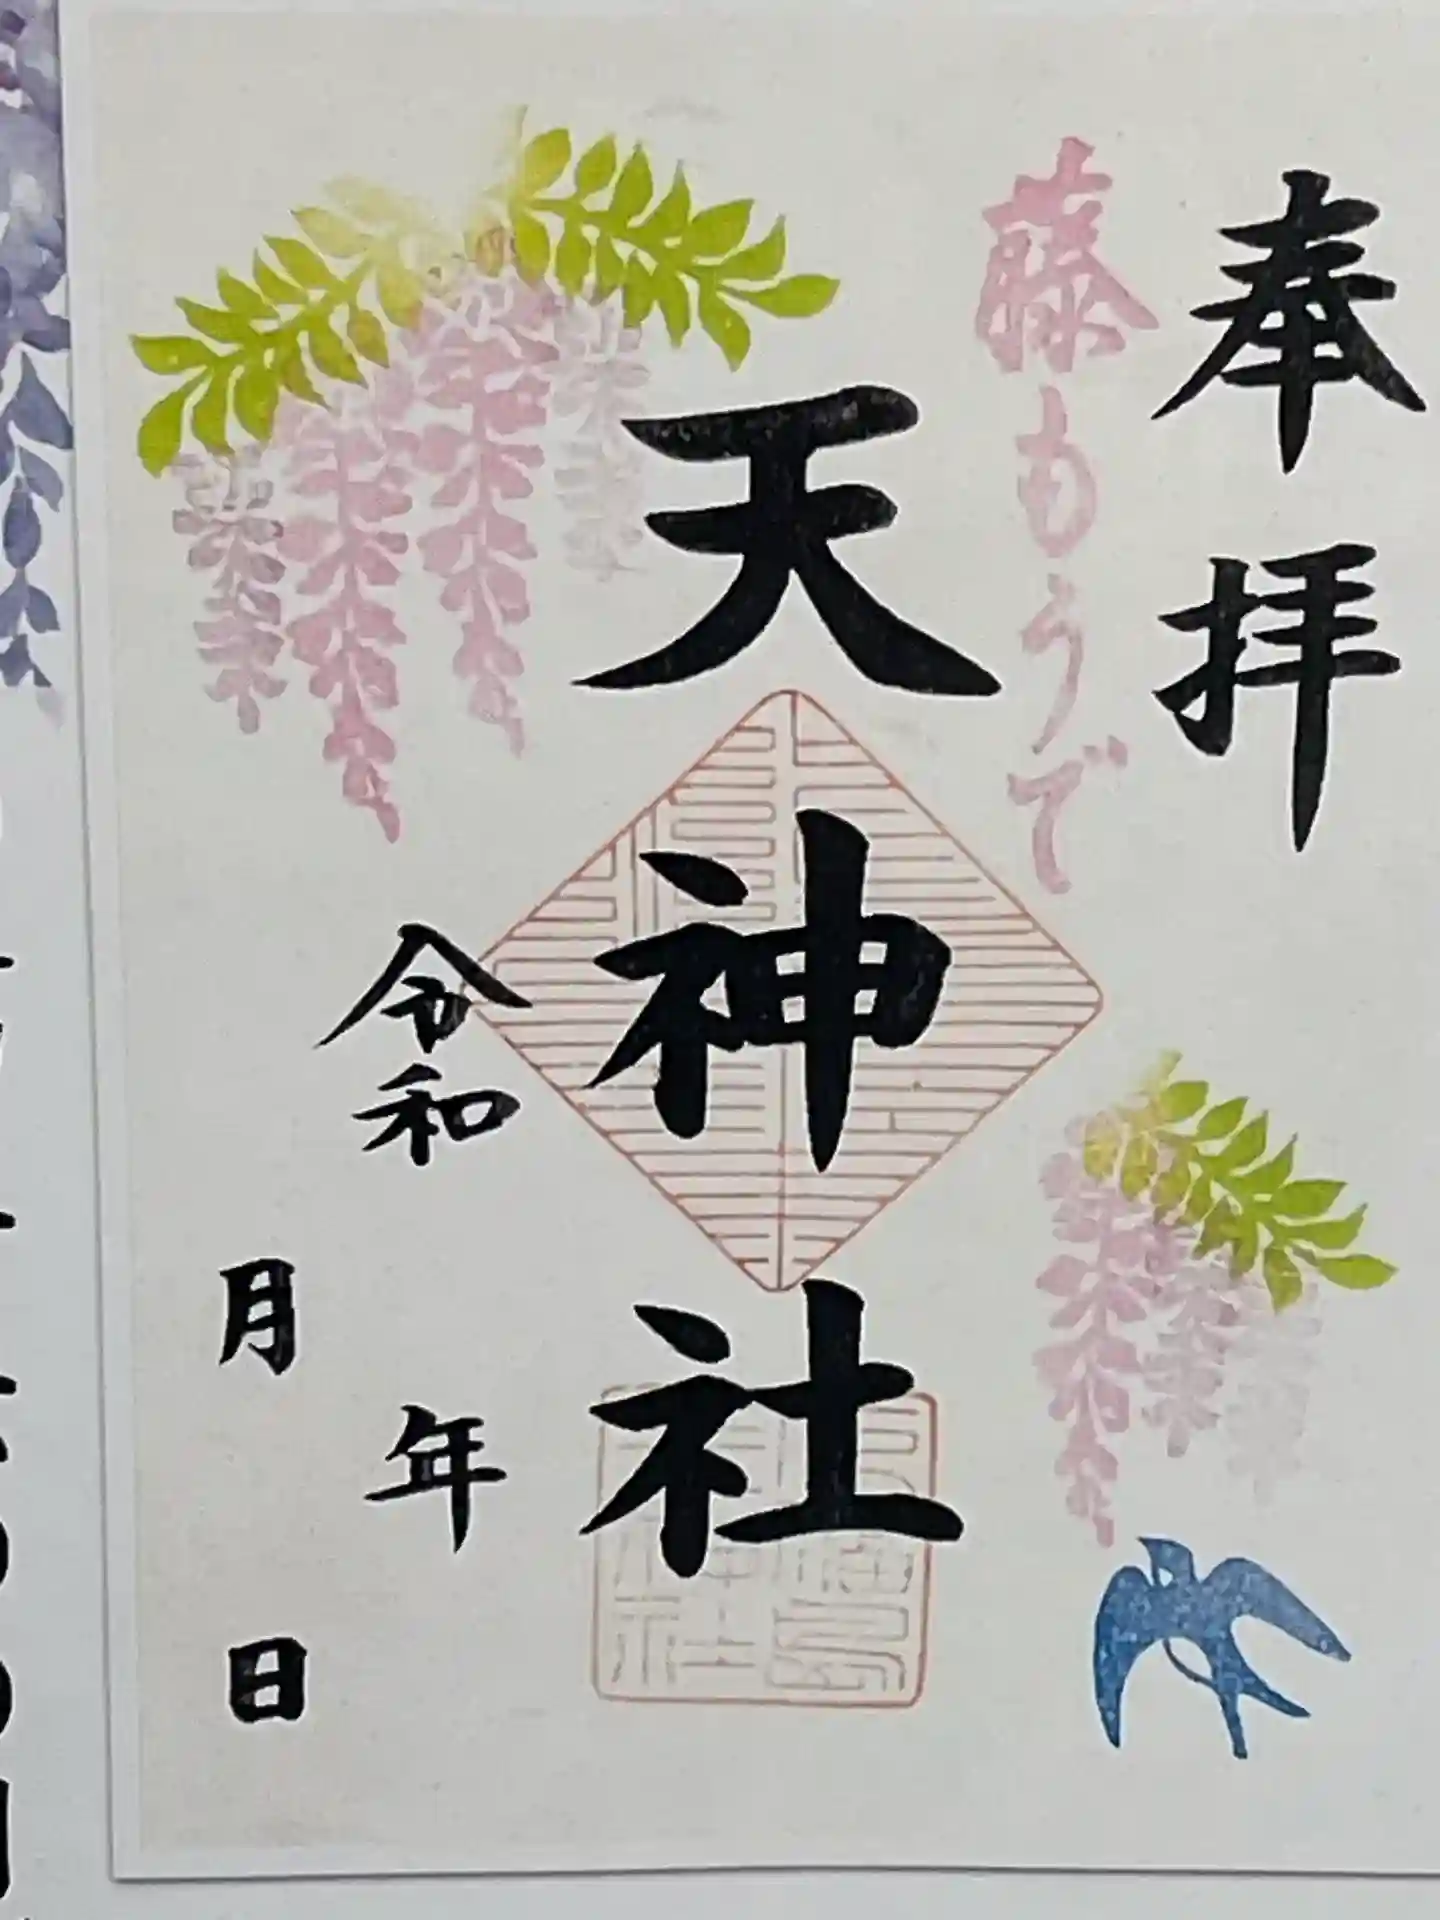 奉拝
藤もうで
天神社
令和 年
月 日